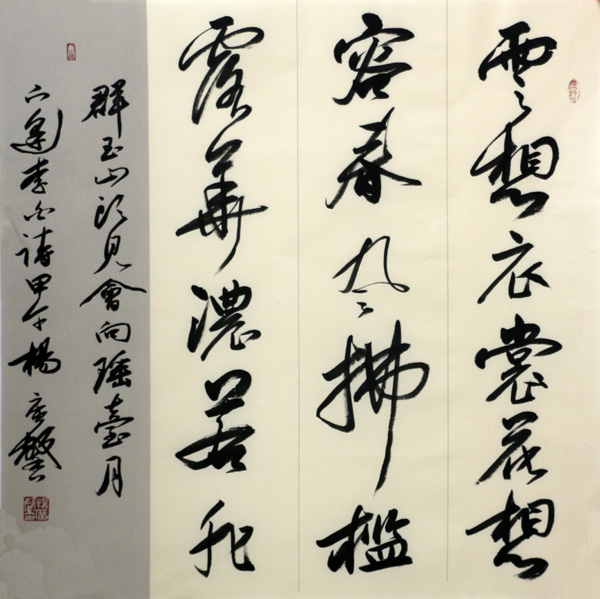 雲想衣裳花想
容春風拂檻
露華濃若非
群玉山頭見會向瑤臺月
下逢李白詩甲午楊